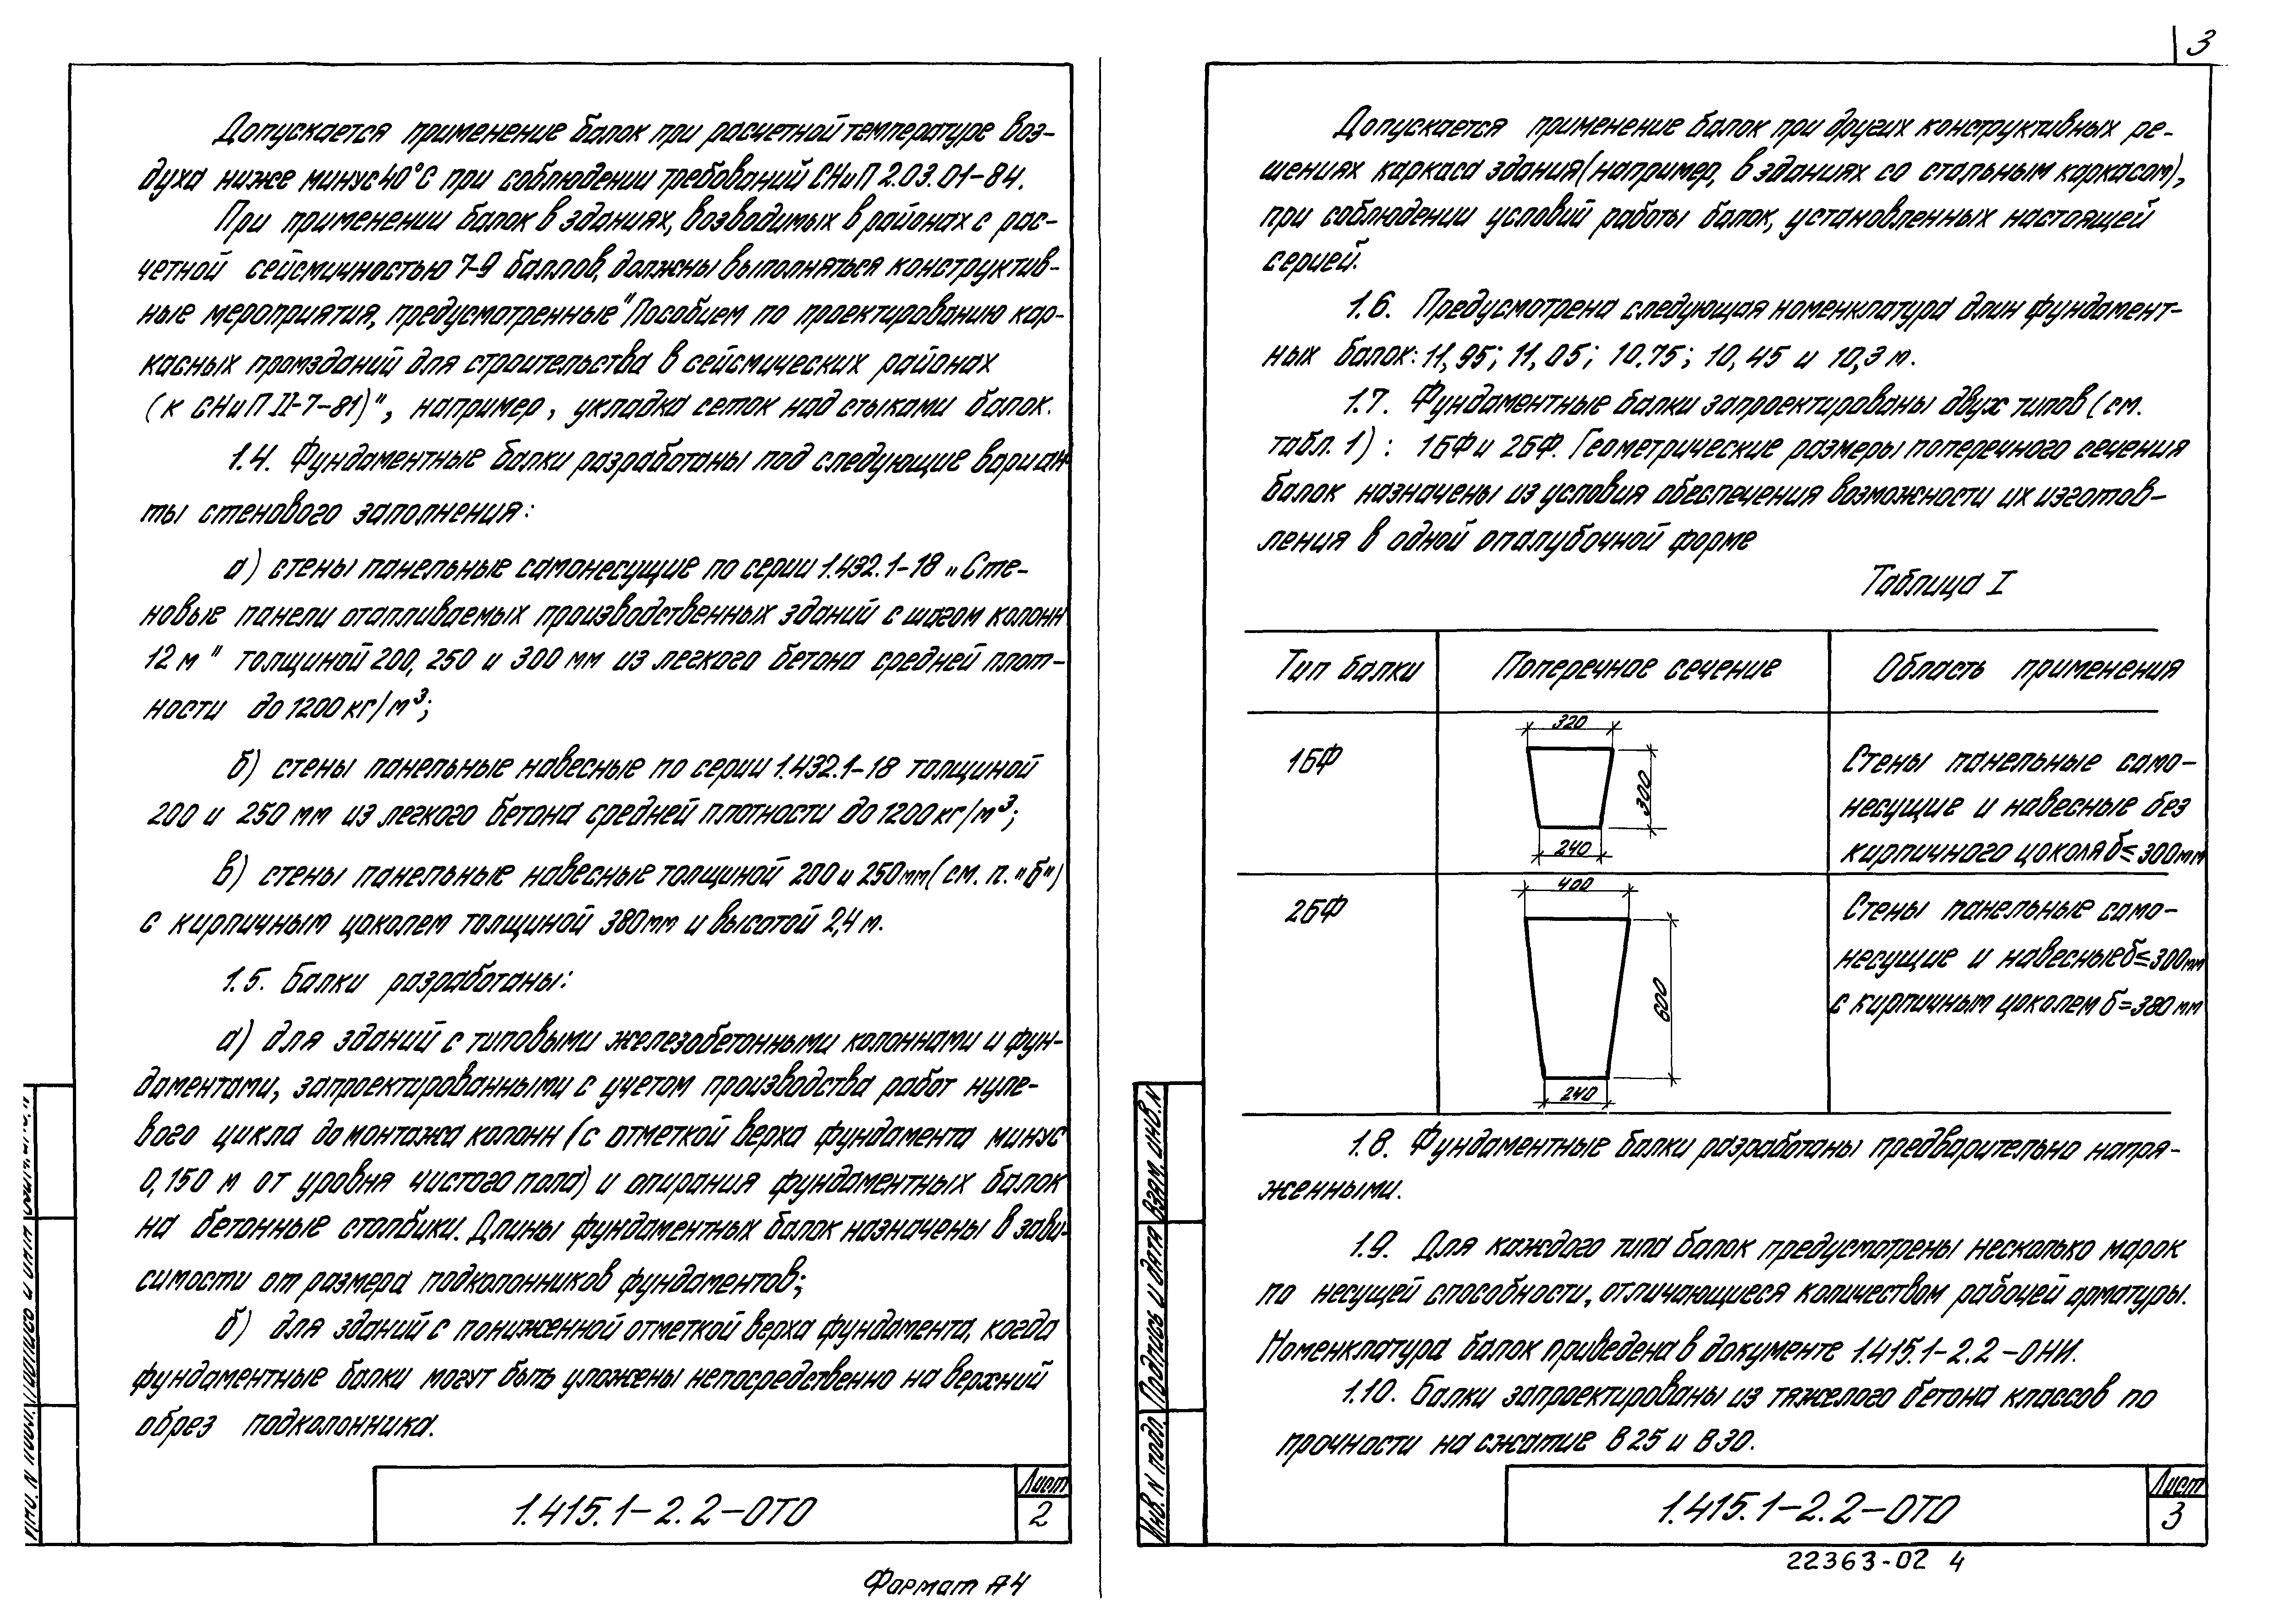 Допускается применение балок при расчетной температуре воз-
духа ниже минус 40°С при соблюдении требований СНиП 2.03.01-84.
При применении балок в зданиях, возводимых в районах с рас-
четной сейсмичностью 7-9 баллов, должны выполняться конструктив-
ные мероприятия, предусмотренные "Пособием по проектированию кар-
касных промзданий для строительства в сейсмических районах
(к СНиП II-7-81)", например, укладка сеток над стыками балок.
1.4. Фундаментные балки разработаны под следующие вариан-
ты стенового заполнения:
а) стены панельные самонесущие по серии 1.432.1-18 „Сте-
новые панели отапливаемых производственных зданий с шагом колонн
12 м" толщиной 200, 250 и 300 мм из легкого бетона средней плот-
ности до 1200 кг/м³;
б) стены панельные навесные по серии 1.432.1-18 толщиной
200 и 250 мм из легкого бетона средней плотности до 1200 кг/м³;
в) стены панельные навесные толщиной 200 и 250 мм (см. п. "б")
с кирпичным цоколем толщиной 380 мм и высотой 2,4 м.
1.5. Балки разработаны:
а) для зданий с типовыми железобетонными колоннами и фун-
даментами, запроектированными с учетом производства работ нуле-
вого цикла до монтажа колонн (с отметкой верха фундамента минус
0,150 м от уровня чистого пола) и опирания фундаментных балок
на бетонные столбики. Длины фундаментных балок назначены в зави-
симости от размера подколонников фундаментов;
б) для зданий с пониженной отметкой верха фундамента, когда
фундаментные балки могут быть уложены непосредственно на верхний
обрез подколонника.
1.415.1-2.2-ОТО
Лист
2
Формат А4
3
Допускается применение балок при других конструктивных ре-
шениях каркаса здания (например, в зданиях со стальным каркасом),
при соблюдении условий работы балок, установленных настоящей
серией.
1.6. Предусмотрена следующая номенклатура длин фундамент-
ных балок: 11,95; 11,05; 10.75; 10,45 и 10,3 м.
1.7. Фундаментные балки запроектированы двух типов (см.
табл. 1) : 1БФ и 2БФ. Геометрические размеры поперечного сечения
балок назначены из условия обеспечения возможности их изготов-
ления в одной опалубочной форме
Таблица I
Тип балки Поперечное сечение Область применения
1БФ
320
300
240
Стены панельные само-
несущие и навесные без
кирпичного цоколя б≤300мм
2БФ
400
600
240
Стены панельные само-
несущие и навесные б≤300мм
с кирпичным цоколем б=380 мм
1.8. Фундаментные балки разработаны предварительно напря-
женными.
1.9. Для каждого типа балок предусмотрены несколько марок
по несущей способности, отличающиеся количеством рабочей арматуры.
Номенклатура балок приведена в документе 1.415.1-2.2-ОНИ.
1.10. Балки запроектированы из тяжелого бетона классов по
прочности на сжатие В25 и В30.
Инв. N подл. Подпись и дата Взам. инв. N
1.415.1-2.2-ОТО
Лист
3
22363-02 4